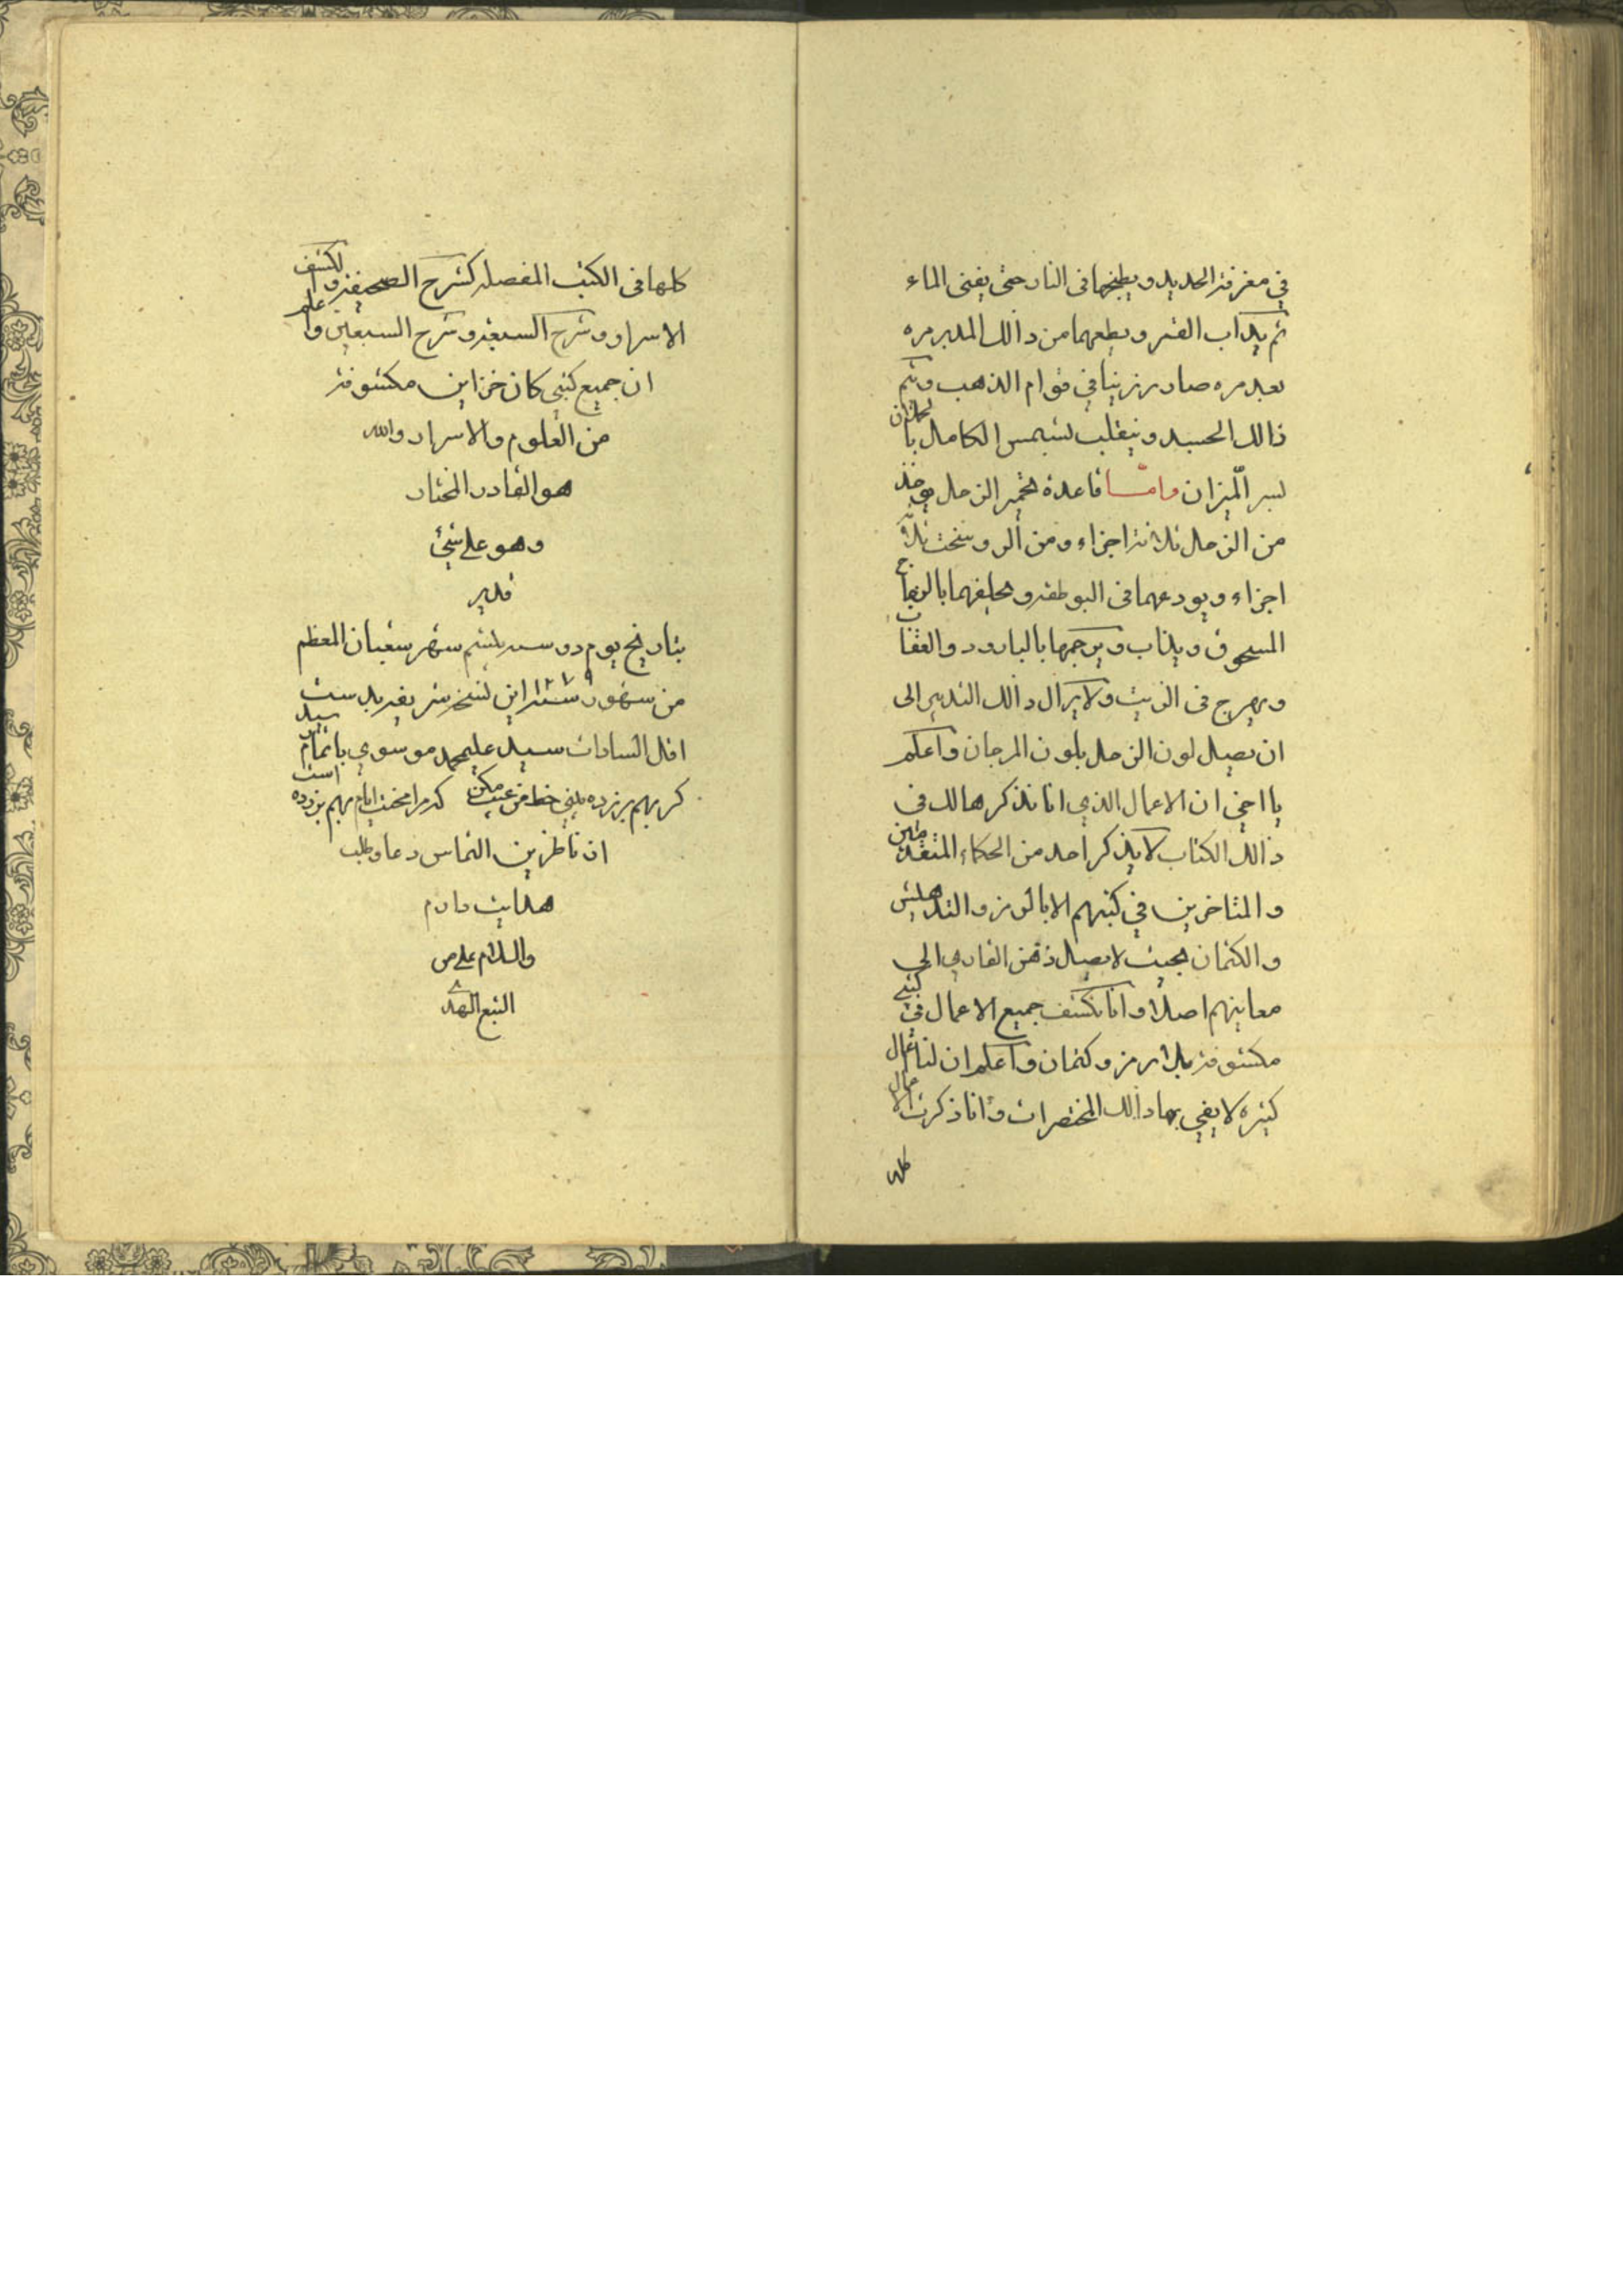 في مغرفة الحديد ويطبخها في النار حتى يفنى الماء
ثم يذاب القمر ويطعهما من ذالك المدبر مره
بعد مره صار رزينا في قوام الذهب ويتم
ذالك الجسد وينقلب لشمس الكامل بالحملان
لسر المیزان واما قاعدة تخمير الزحل يوخذ
من الزحل ثلاثة اجزاء ومن الروسخت ثلاث
اجزاء ويودعهما في البوطقه و بالزجاج
المسحوق ويذاب ويرجمها بالبارود والعقاب
و في الزيت ولا يزال ذالك التدبير الى
ان يصيل لون الزحل بلون المرجان واعلم
يا اخي ان الاعمال الذي انا نذكرها لك في
ذالك الكتاب لا يذكر احد من الحكماء المتقدمين
و المتاخرين في كتبهم الا بالرمز والتدهيش
و الكتمان بحيث لا يصيل ذهن القاري الى
معاينهم اصلا وانا نكشف جميع الاعمال في كتبي
مكشوفة بلا رمز وكتمان واعلم ان لنا اعمال
كثيره لا يفي بها ذالك المختصرات وانا ذكرت الاعمال
كلها
كلها في الكتب المفصله كشرح الصحيفة والكشف
الاسرار وشرح السبعة وشرح السبعين واعلم
ان جميع كتبي كان خزاين مكشوفة
من العلوم والاسرار والله
هو القادر المختار
وهو على شيئ
قدير
بتاريخ يوم دوسه شهر شعبان المعظم
من شهور سنه ١٢٧٩ اين نسخه شريفه بدست
اقل السادات سيد عليمحمد موسوي باتمام رسيد
كر بهم بر زده بيني خط من عيب مكن كه مرا محنت ايام بهم بر زده است
از ناظرين التماس دعا وطلب
هدايت دارم
والسلام على من
اتبع الهدا